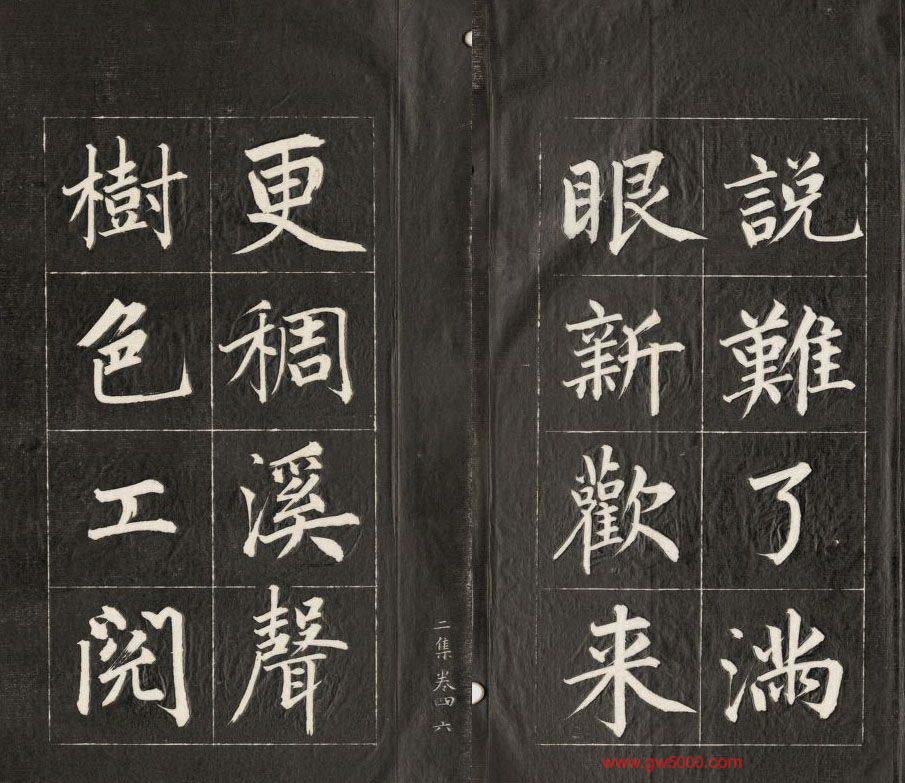 説難了滿
眼新歡来
二集 卷四 六
更稠溪聲
樹色工閱
www.gw5000.com